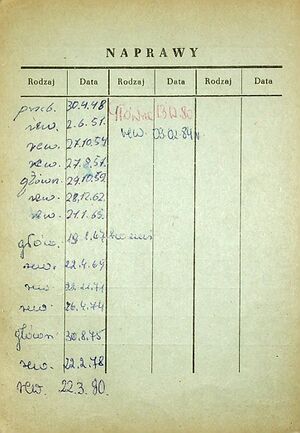 NAPRAWY
Rodzaj Data Rodzaj Data Rodzaj Data
30.4.48 13.12.80
rew. 2.6.51. rew. 03.02.84
rew. 27.10.54
rew. 27.8.57.
główn. 29.10.59.
rew. 28.12.62.
rew. 21.1.65.
główn.
rew. 22.4.69
rew.
rew. 26.4.74
główn. 30.8.75
rew. 22.2.78
rew. 22.3.80.